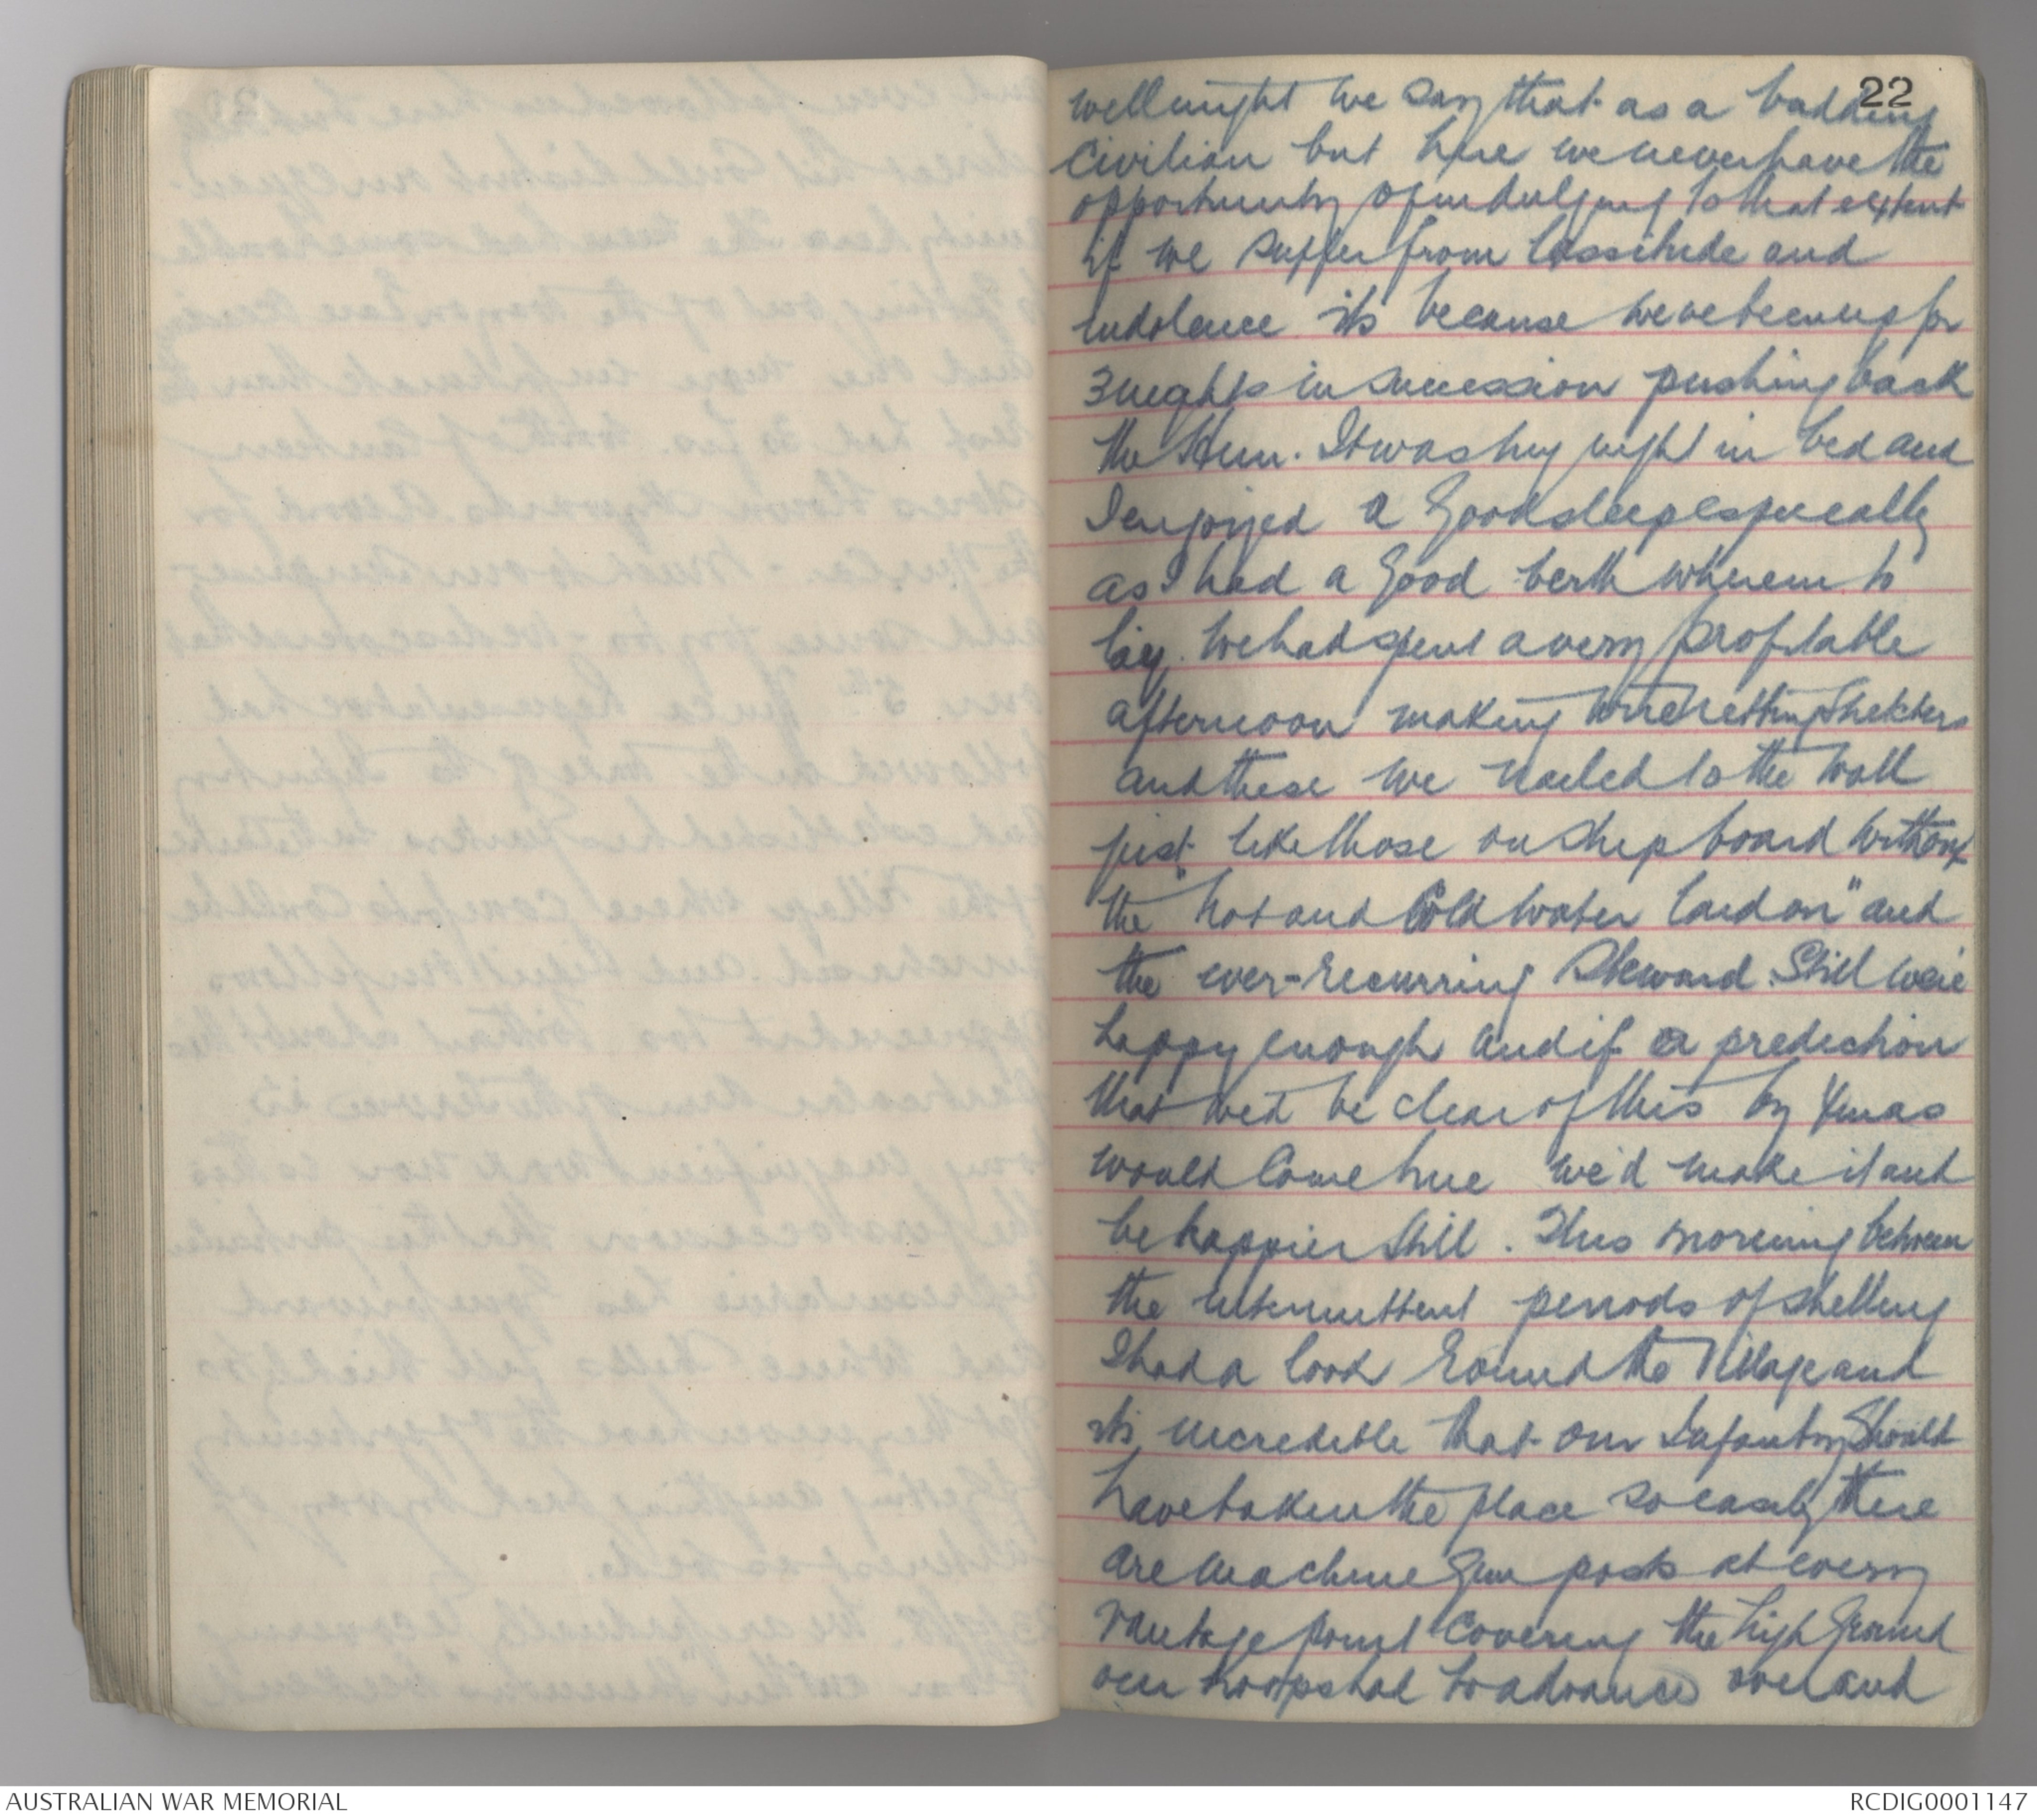 22
well might we say that as a budding
civilian but here we never have the
opportunity of indulging to that extent
if we suffer from lassitude and
indolence its because weve been up for
3 nights in succession pushing back
the Hun. It was my night in bed and
I enjoyed a good sleep especially
as I had a good berth wherein to
lay. We had spent a very profitable
afternoon making wire netting
and these we nailed to the wall
just like those on ship board without
the "hot and Cold water laid on" and
the ever-recurring Steward. Still we're
happy enough and if a prediction
that we'd be clear of this by Xmas
would come true we'd make it and
be happier still. This morning between
the intermittent periods of shelling
I had a look round the Village and
its incredible that our Infantry should
have taken the place so easily there
are machine gun posts at every
vantage point covering the high ground
our troops had to advance over and
AUSTRALIAN WAR MEMORIAL
RCDIG0001147